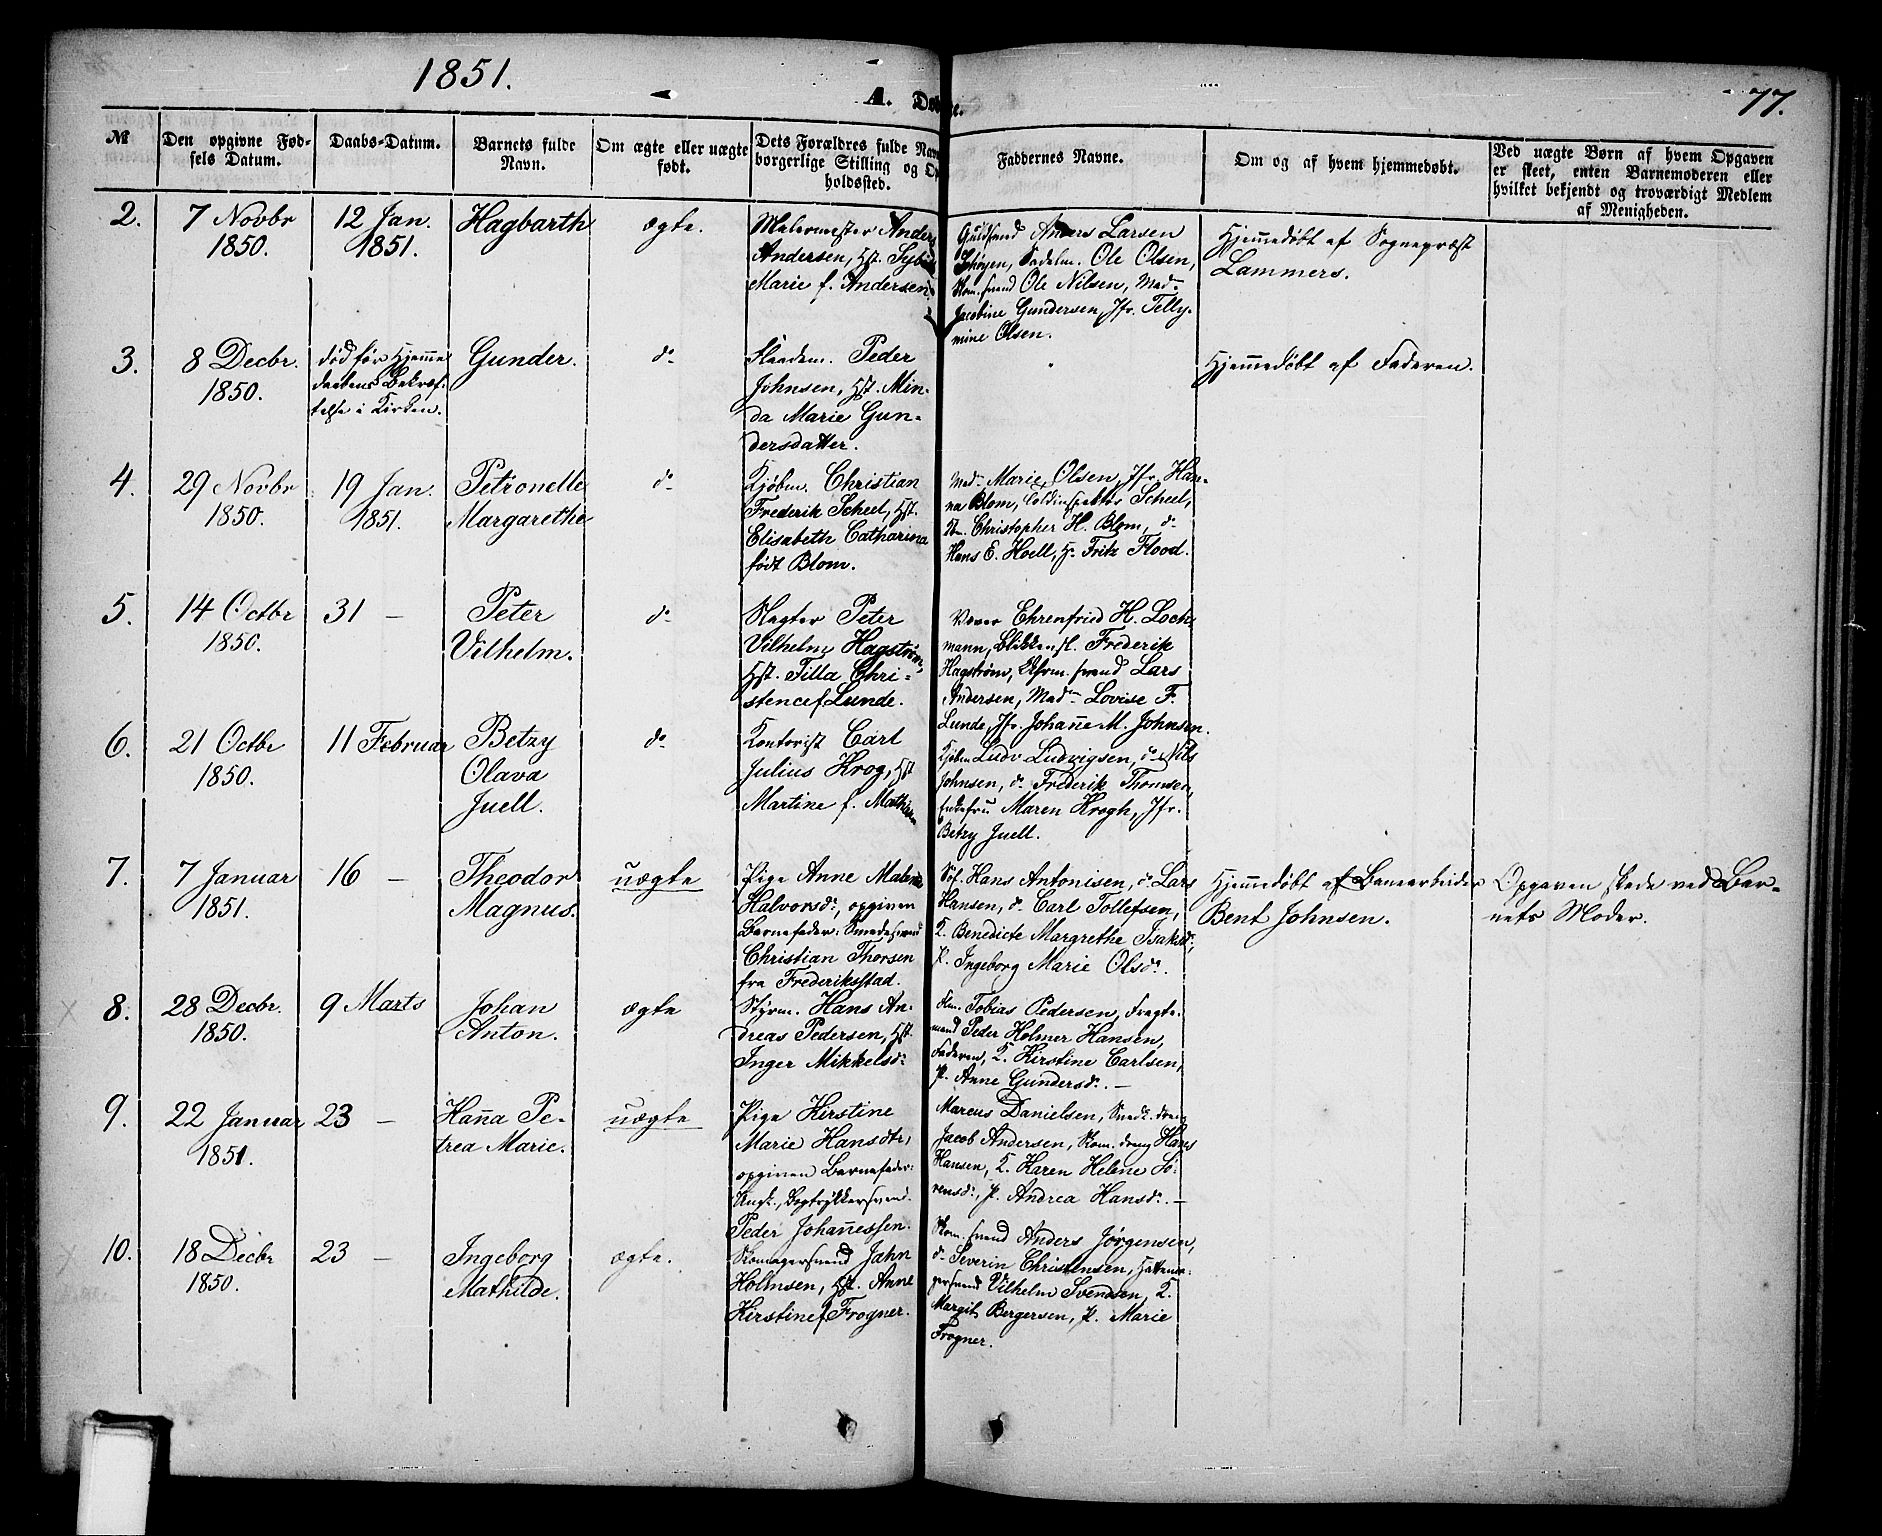 1851.
A. Døbte.
77.
№
Den opgivne Fød-
sels Datum.
Daabs-Datum.
Barnets fulde
Navn.
Om ægte eller uægte
født.
Dets Forældres fulde Navn
borgerlige Stilling og Op
holdssted.
Faddernes Navne.
Om og af hvem hjemmedøbt.
Ved uægte Børn af hvem Opgaven
er skeet, enten Barnemoderen eller
hvilket bekjendt og troværdigt Medlem
af Menigheden.
2.
7 Novbr
1850.
12 Jan.
1851.
Hagbarth
ægte.
Malermester Anders
Andersen, Hst.
Marie f. Andersen
Guldsvend Anders Larsen
Sadelm. Ole Olsen,
Skom. svend Ole Nilsen, Mad-
Jacobine Gundersen, Jfr. Telly-
mine Olsen.
Hjemedøbt af Sognepræst
Lammers.
3.
8 Decbr.
1850.
død før Hjeme
daabens Bekræf-
telse i Kirken.
Gunder.
do
Peder
Johnsen, Hst. Min-
da Marie Gun-
dersdatter.
Hjemedøbt af Faderen.
4.
29 Novbr
1850.
19 Jan.
1851.
Petronelle
Margarethe
do
Kjøbm. Christian
Frederik Scheel, Hst.
Elisabeth Catharina
født Blom.
Mad- Marie Olsen, Jfr. Han-
na Blom, Toldinspektør Scheel,
Christopher H. Blom, do
Hans E. Hoell, H. Fritz Flood.
5.
14 Octbr
1850.
31 -
Peter
Vilhelm.
do
Slagter Peter
Vilhelm Hagstrøm,
Hst. Tilla Chri-
stence f Lunde.
Væver Ehrenfried H. Loch-
mann, Blikkensl. Frederik
Hagstrøm, svend Lars
Andersen, Mad- Lovise F.
Lunde, Jfr. Johane M. Johnsen.
6.
21 Octbr
1850.
11 Februar
Betzy
Olava
Juell.
do
Kontorist Carl
Julius Krog, Hst
Martine f. Mathiesen
Kjøbm Ludv Ludvigsen, do Nils
Johnsen, do Frederik Thomsen,
Enkefru Maren Krogh, Jfr.
Betzy Juell.
7.
7 Januar
1851.
16 -
Theodor
Magnus.
uægte
Pige Anne Malene
Halvorsd., opgiven
Barnefader: Smedesvend
Christian Thorsen
fra Frederiksstad.
Søf. Hans Antonisen, do Lars
Hansen, do Carl Tollefsen,
K. Benedicte Margrethe Isaksd.,
P. Ingeborg Marie Olsd.
Hjemedøbt af Banearbeider
Bent Johnsen.
Opgaven skede ved Bar-
nets Moder.
8.
28 Decbr.
1850.
9 Marts
Johan
Anton.
ægte
Styrm. Hans An-
dreas Pedersen, Hst.
Inger Mikkelsd.
Tobias Pedersen, Fragte-
mand Peder Holmer Hansen,
Faderen, K. Kirstine Carlsen,
P. Anne Gundersd. -
9.
22 Januar
1851.
23 -
Hana Pe-
trea Marie.
uægte
Pige Kirstine
Marie Hansdtr,
opgiven Barnefader:
Ungk., Bogtrykkersvend
Peder Johanessen.
Marcus Danielsen, Smedk. dreng
Jacob Andersen, Skom. dreng Hans
Hansen, K. Karen Helene Sö-
rensd., P. Andrea Hansd. -
10.
18 Decbr
1850.
23 -
Ingeborg
Mathilde.
ægte.
Skomagersvend Jahn
Holmsen, Hst. Anne
Kirstine f Frogner.
Skom. svend Anders Jørgensen,
do Severin Christensen, Hattema-
gersvend Vilhelm Svendsen, K.
Margit Bergersen, P. Marie
Frogner.